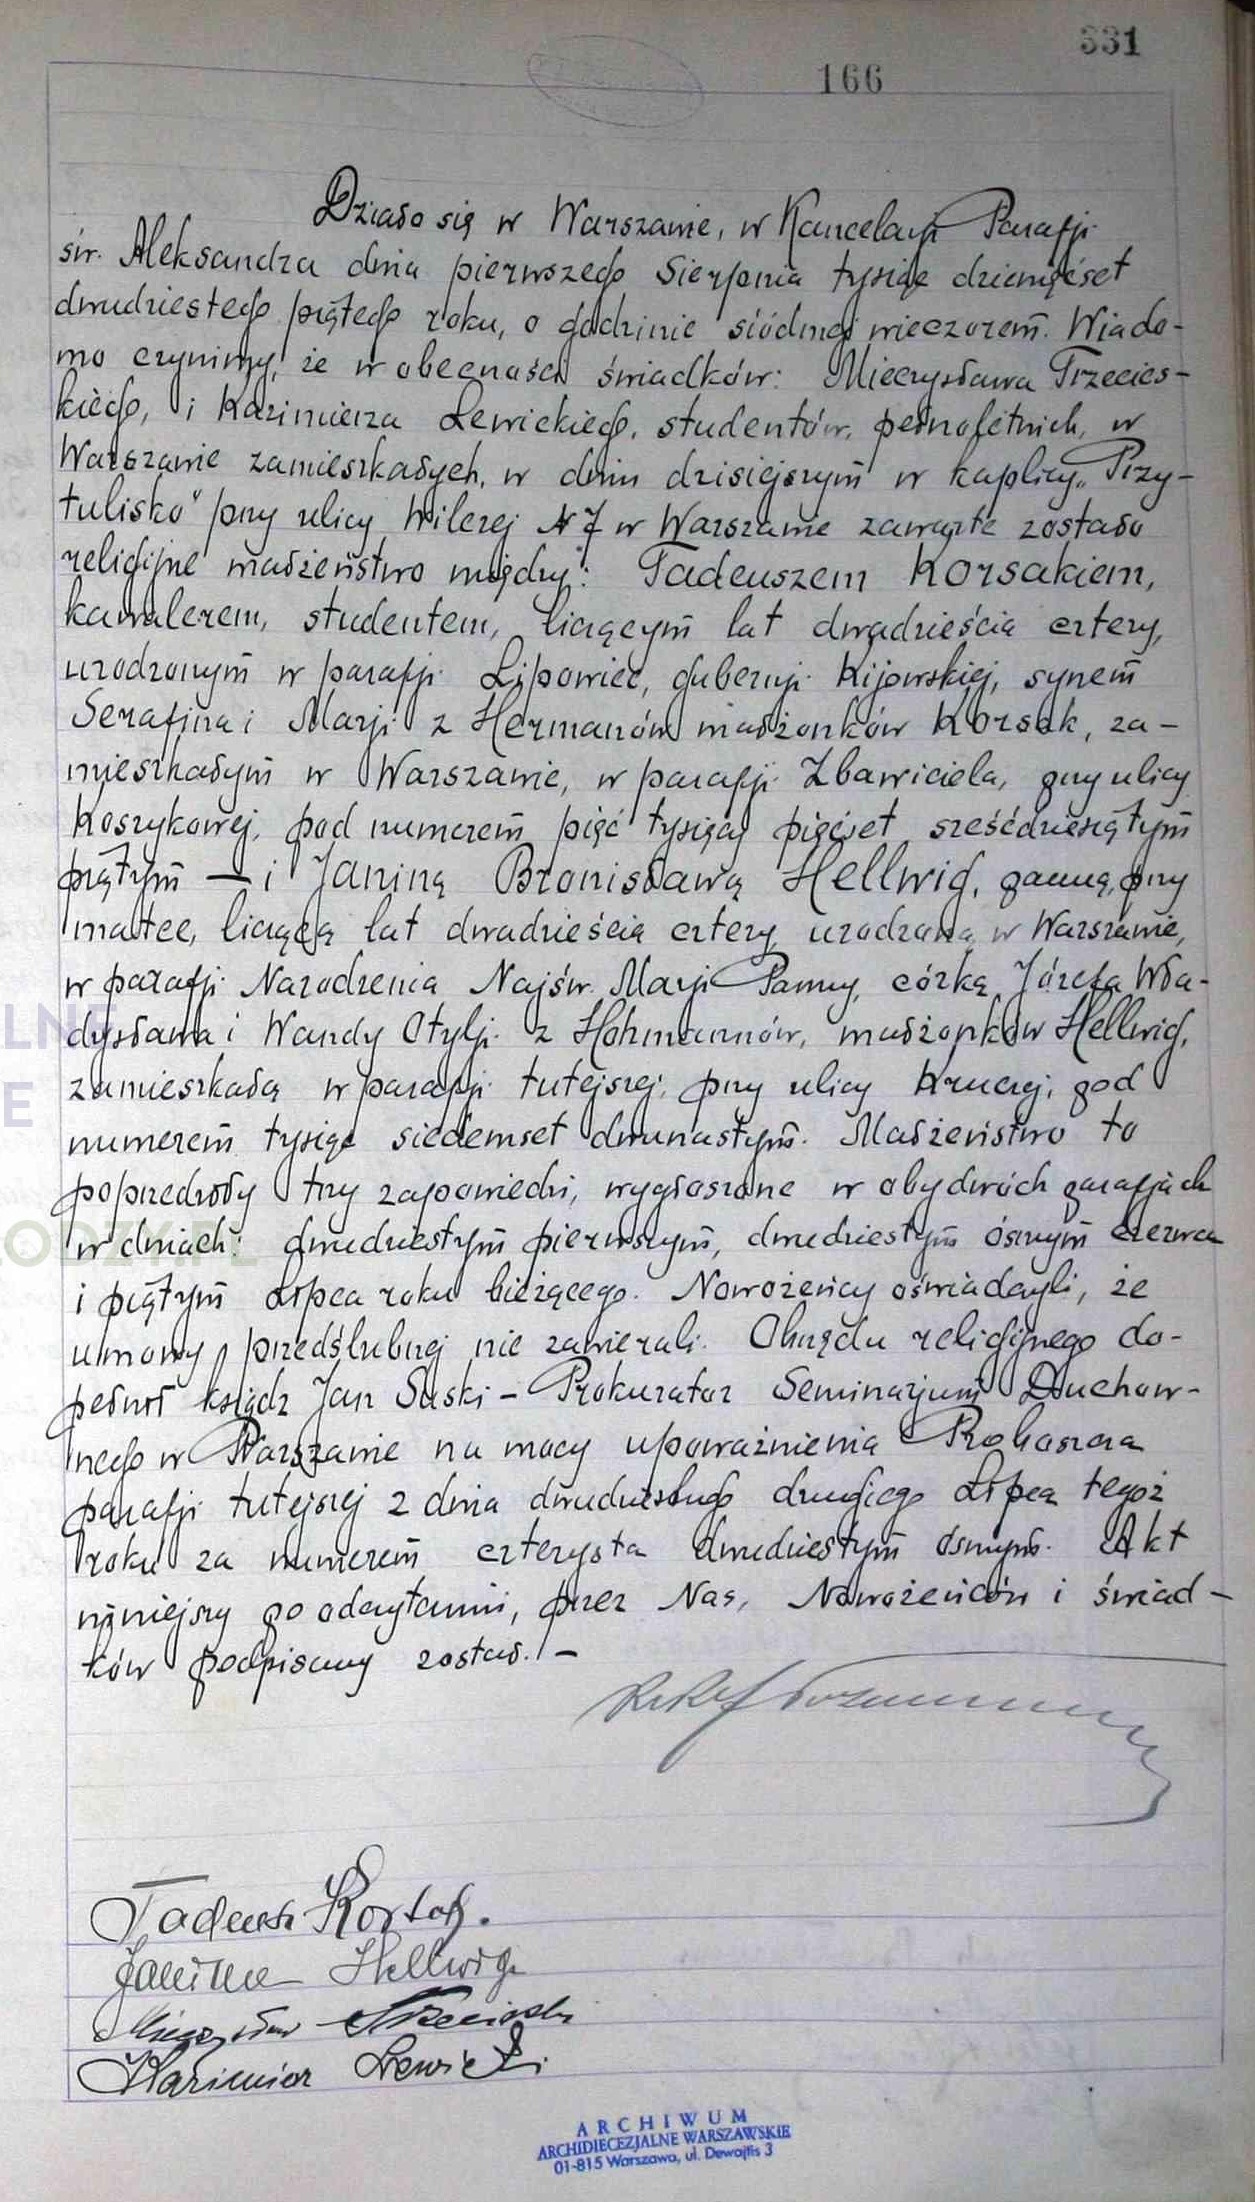 331
166
Działo się w Warszawie, w Kancelarji Parafji
św. Aleksandra dnia pierwszego Sierpnia tysiąc dziewięćset
dwudziestego piątego roku, o godzinie siódmej wieczorem. Wiado-
mo czynimy, że w obecności świadków: Mieczysława Trzecies-
kiego, i Kazimierza Lewickiego, studentów, pełnoletnich, w
Warszawie zamieszkałych, w dniu dzisiejszym w kaplicy „Przy-
tulisko" przy ulicy Wilczej N 7 w Warszawie zawarte zostało
religijne małżeństwo między: Tadeuszem Korsakiem,
kawalerem, studentem, liczącym lat dwadzieścia cztery,
urodzonym w parafji Lipowiec, gubernji Kijowskiej, synem
Serafina i Marji z Hermanów małżonków Korsak, za-
mieszkałym w Warszawie, w parafji Zbawiciela, przy ulicy
Koszykowej, pod numerem pięć tysięcy pięćset sześćdziesiątym
piątym — i Janiną Bronisławą Hellwig, panną, przy
matce, liczącą lat dwadzieścia cztery, urodzoną w Warszawie,
w parafji Narodzenia Najśw. Marji Panny, córką Józefa Wła-
dysława i Wandy Otylji z Hohmannów, małżonków Hellwig,
zamieszkałą w parafji tutejszej, przy ulicy Kruczej, pod
numerem tysiąc siedemset dwunastym. Małżeństwo to
poprzedziły trzy zapowiedzi, wygłoszone w obydwóch parafjach
w dniach: dwudziestym pierwszym, dwudziestym ósmym czerwca
i piątym Lipca roku bieżącego. Nowożeńcy oświadczyli, że
umowy przedślubnej nie zawierali. Obrzędu religijnego do-
pełnił ksiądz Jan Suski – Prokurator Seminarjum Duchow-
nego w Warszawie na mocy upoważnienia Proboszcza
parafji tutejszej z dnia dwudziestego drugiego Lipca tegoż
roku za numerem czterysta dwudziestym ósmym. Akt
niniejszy po odczytaniu, przez Nas, Nowożeńców i świad-
ków podpisany został. –
Tadeusz Korsak.
Janina Hellwig
Mieczysław Trzecieski
Kazimierz Lewicki
ARCHIWUM
ARCHIDIECEZJALNE WARSZAWSKIE
01-815 Warszawa, ul. Dewajtis 3